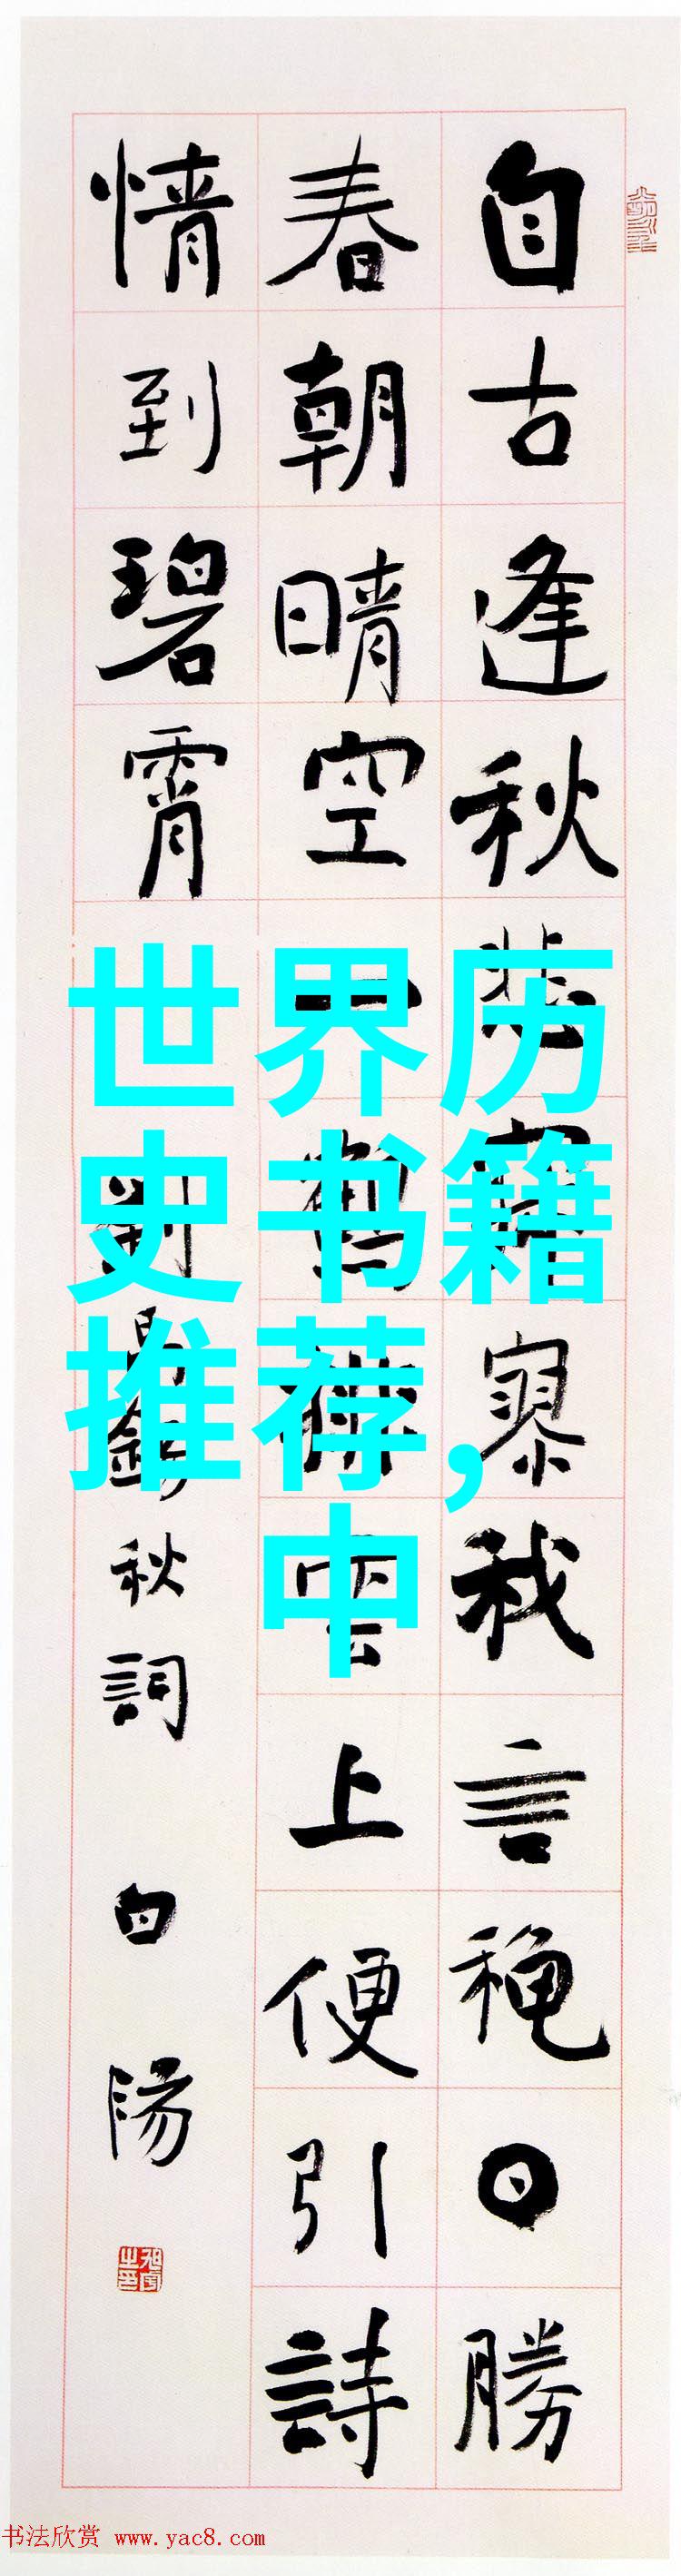 自古逢秋悲寂寥我言穐日勝
春朝晴空一鶴排雲上便引詩
情到碧霄
劉禹錫秋詞 白陽
世界历
史书籍
推荐,
中
书法欣赏 www.yac8.com